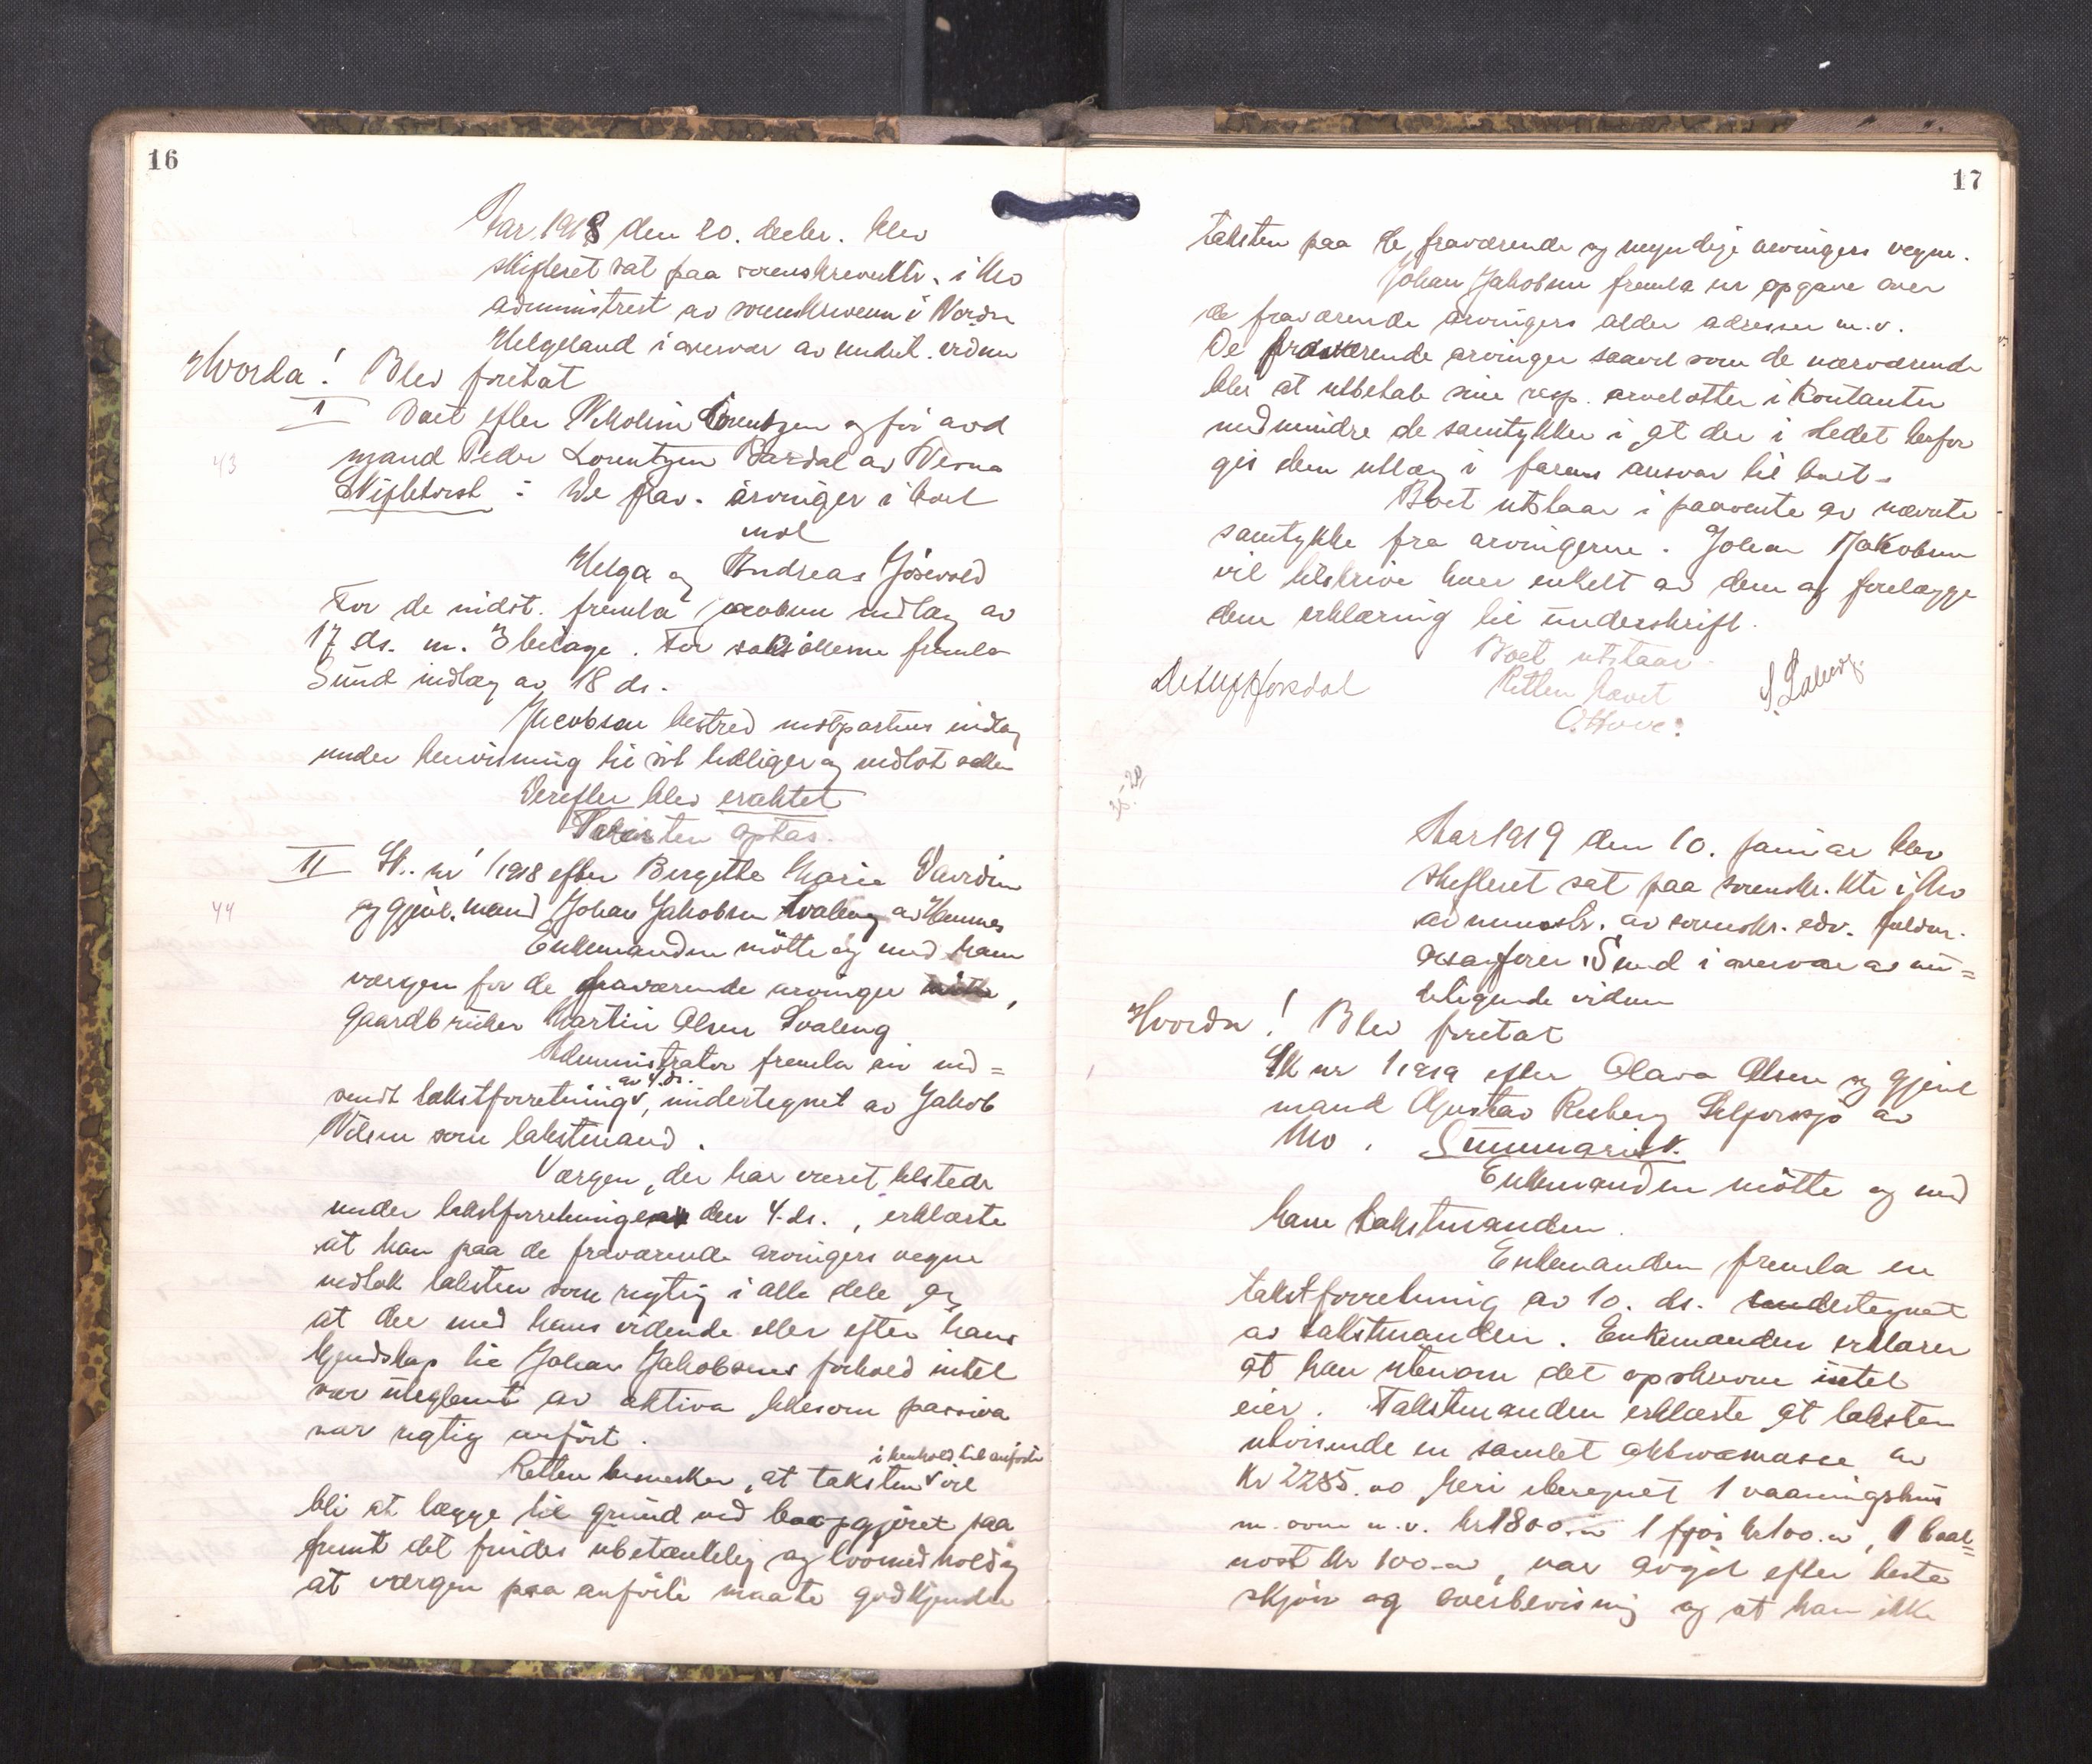 16
Aar 1918 den 20. decbr. blev
skifteret sat paa sorenskriverktr. i Mo
administrert av sorenskriveren i Nordre
Helgeland i overvær av undert. vidner
Hvorda! Blev foretat
I Boet efter Nikoline Lorentzen og før avd
43
mand Peder Lorentzen Bardal av Nesna
Skiftetvist: De frav. arvinger i boet
mot
Helga og Andreas Jösevold
For de indst. fremla Jacobsen indlæg av
17 ds. m. 3 bilage. For saksökerne fremla
Sund indlæg av 18 ds.
Jacobsen bestred motpartens indlæg
under henvisning til sit tidligere og indlot saken
Derefter blev eraktet
Tvisten optas.
II Sk. nr 1/1918 efter Bergitte Marie Davidsen
44
og gjenl. mand Johan Jakobsen Svaleng av Hemnes
Enkemanden mötte og med ham
værgen for de fraværende arvinger mötte,
gaardbruker Martin Olsen Svaleng
Administrator fremla en ind=
av 4. ds.
sendt takstforretning, undertegnet av Jakob
Nilsen som takstmand.
Værgen, der har været tilstede
under takstforretningen den 4. ds., erklærte
at han paa de fraværende arvingers vegne
vedtok taksten som rigtig i alle dele og
at der med hans vidende eller efter hans
kjendskap til Johan Jakobsens forhold intet
var uteglemt av aktiva likesom passiva
var rigtig anfört.
i henhold til anförte
Retten bemerker, at taksten vil
bli at lægge til grund ved boopgjöret paa
grunt det findes ubetænkelig og lovmedholdig
at værgen paa anförte maate godkjender
17
taksten paa de fraværende og myndige arvingers vegne.
Johan Jakobsen fremla en opgave over
de fraværende arvingers alder adresser m.v.
De fraværende arvinger saavel som de nærværende
blir at utbetale sine resp. arvelotter i kontanter
medmindre de samtykker i at der i stedet herfor
gis dem utlæg i farens ansvar til boet.
Boet utstaar i paavente av nævnte
samtykke fra arvingerne. Johan Jakobsen
vil tilskrive hver enkelt av dem og forelægge
dem erklæring til underskrift.
Boet utstaar.
Retten hævet
O. Hove.
Aar 1919 den 10. januar blev
skifteret sat paa sorenskr. ktr. i Mo
administr. av sorenskr. edv. fuldm.
oversagfører Sund i overvær av un=
dertegnede vidner
Hvorda! Blev foretat
Sk nr 1/1919 efter Olava Olsen og gjenl
mand Gustav Resberg Selforsjo av
Mo. Summarisk.
Enkemanden mötte og med
ham takstmanden.
Enkemanden fremla en
takstforretning av 10. ds. undertegnet
av takstmanden. Enkemanden erklærer
at han utenom det opskrevne intet
eier. Takstmanden erklærte at taksten
utvisende en samlet aktivamasse av
Kr 2285.00 heri iberegnet 1 vaaningshus
m. ovn m. v. kr 1800.00 1 fjös kr 100.00, 1 baat=
nost kr 100.00, var avgit efter beste
skjön og overbevisning og at han ikke